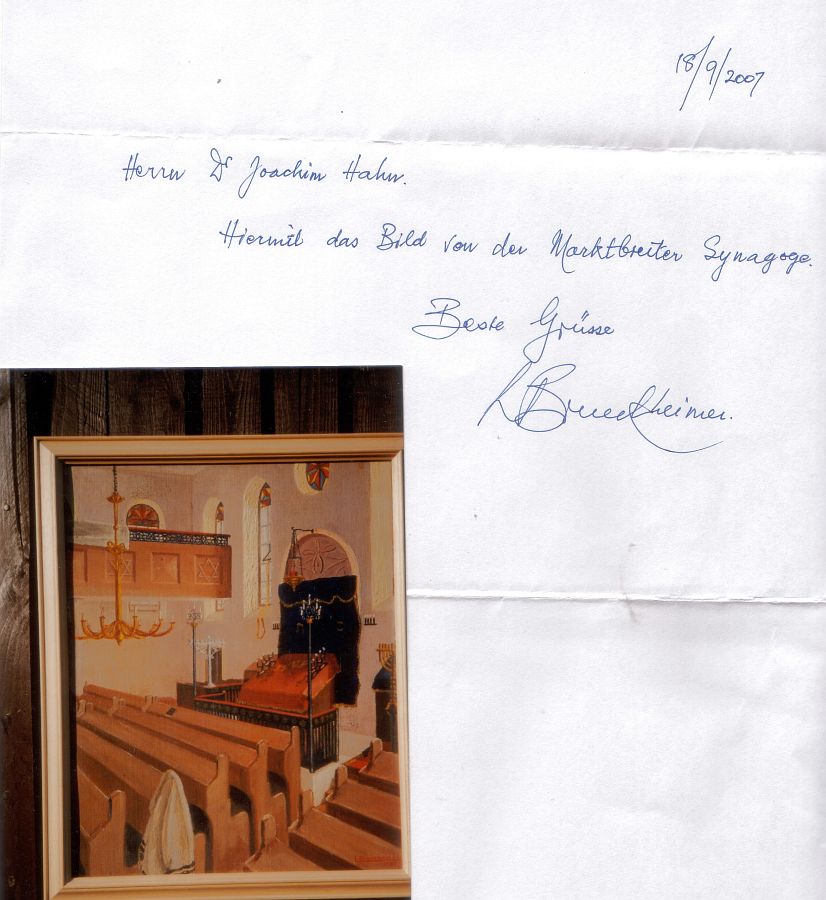 18/9/2007
Herrn Dr Joachim Hahn.
Hiermit das Bild von der Marktbreiter Synagoge.
Beste Grüsse
L Brueckheimer.